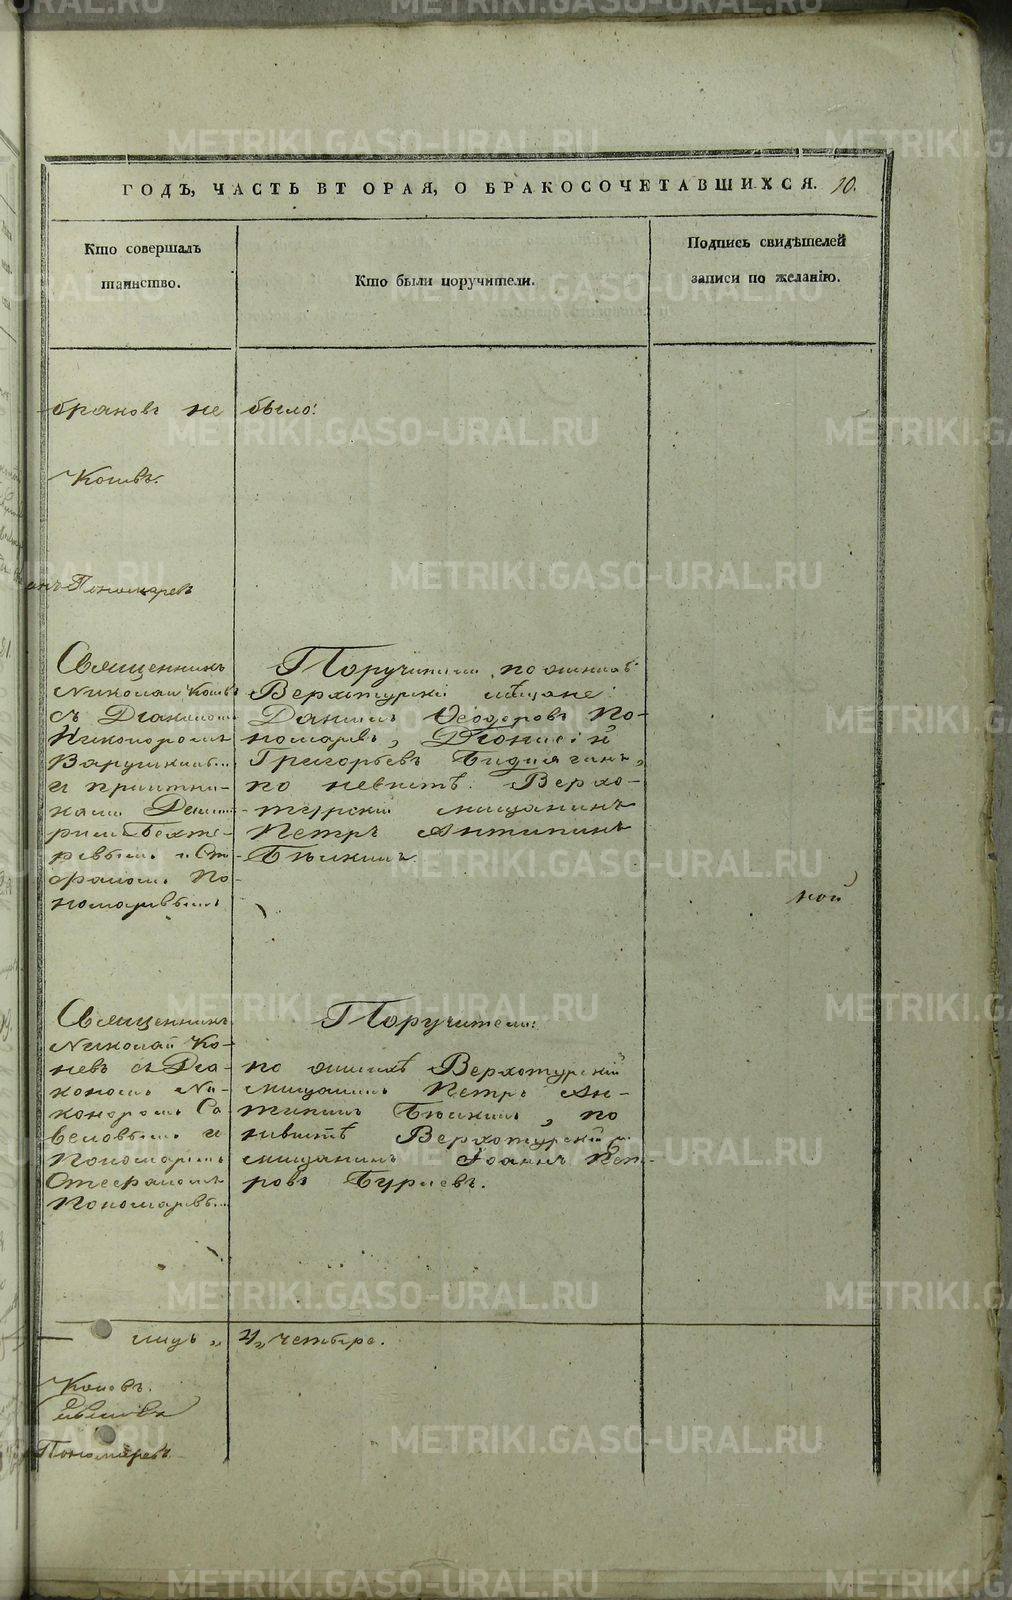 ГОДЪ, ЧАСТЬ ВТОРАЯ, О БРАКОСОЧЕТАВШИХСЯ. 10.
Кто совершалъ
таинство.
Кто были поручители.
Подпись свидѣтелей
записи по желанію.
браковъ не было:
Коневъ.
Пономаревъ
Священникъ
Николай Коневъ
съ Діакономъ
Никоноромъ
и причтни-
ками Дмит-
ріемъ Бехте-
ревымъ и Сте-
фаномъ По-
номаревымъ
Поручители по женихѣ
Верхотурскіе мѣщане:
Даніилъ Ѳеодоровъ По-
номаревъ, Діонисій
Григорьевъ
по невѣстѣ: Верхо-
турскій мѣщанинъ
Петръ Антипинъ
ной
Священникъ
Николай Ко-
невъ съ Діа-
кономъ Ни-
конеромъ Са-
веловымъ и
Пономаремъ
Стефаномъ
Пономаревы
Поручители:
по женихѣ Верхотурскій
мѣщанинъ Петръ Ан-
типинъ, по
невѣстѣ Верхотурскій
мѣщанинъ Іоаннъ Пет-
ровъ Бурлевъ.
лицъ „ 4 „ четыре.
Коневъ.
Пономаревъ
METRIKI.GASO-URAL.RU